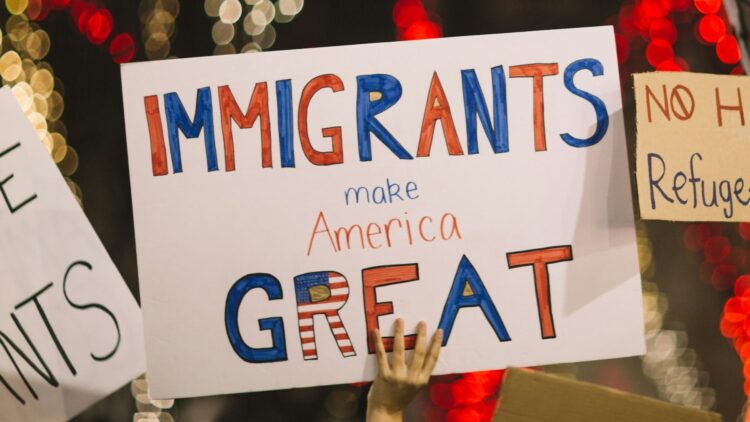 IMMIGRANTS
make
America
GREAT
NO H
Refuge
E
NTS